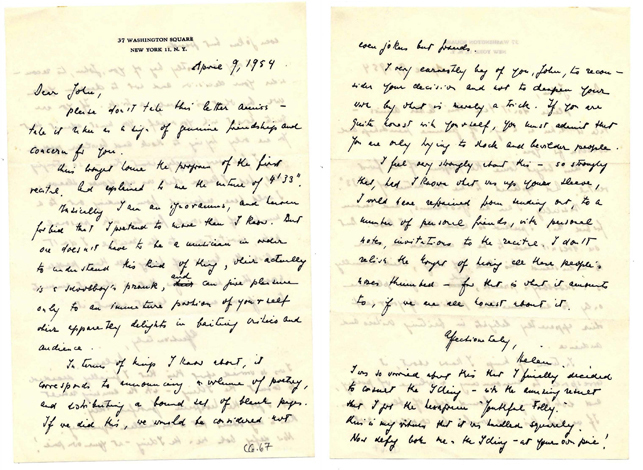 37 WASHINGTON SQUARE
NEW YORK 11, N. Y.
April 9, 1954
Dear John,
please don't take this letter amiss –
take it rather as a sign of genuine friendship and
concern for you.
brought home the program of the first
recital, and explained to me the nature of 4' 33".
Basically I am an ignoramus, and heaven
forbid that I pretend to more than I know. But
one doesn't have to be a musician in order
to understand this kind of thing, which actually
is a schoolboy's prank, and can give pleasure
only to an immature portion of yourself
which apparently delights in baiting critics and
audience.
In terms of things I know about, it
corresponds to announcing a volume of poetry,
and distributing a bound set of blank pages.
If we did this, we would be considered not
CG.67
even jokers but frauds.
I very earnestly beg of you, John, to recon-
sider your decision and not to cheapen your
work by what is merely a trick. If you are
quite honest with yourself, you must admit that
you are only trying to shock and bewilder people.
I feel very strongly about this – so strongly
that, had I known what was up your sleeve,
I would have refrained from sending out, to a
number of personal friends, with personal
notes, invitations to the recital. I don't
relish the thought of having all these people's
noses thumbed – for that is what it amounts
to, if we are all honest about it.
Affectionately,
Helen
I was so worried about this that I finally decided
to consult the I Ching – with the amusing result
that I got the hexagram "Youthful Folly."
Now defy both me & the I Ching – at your own peril!